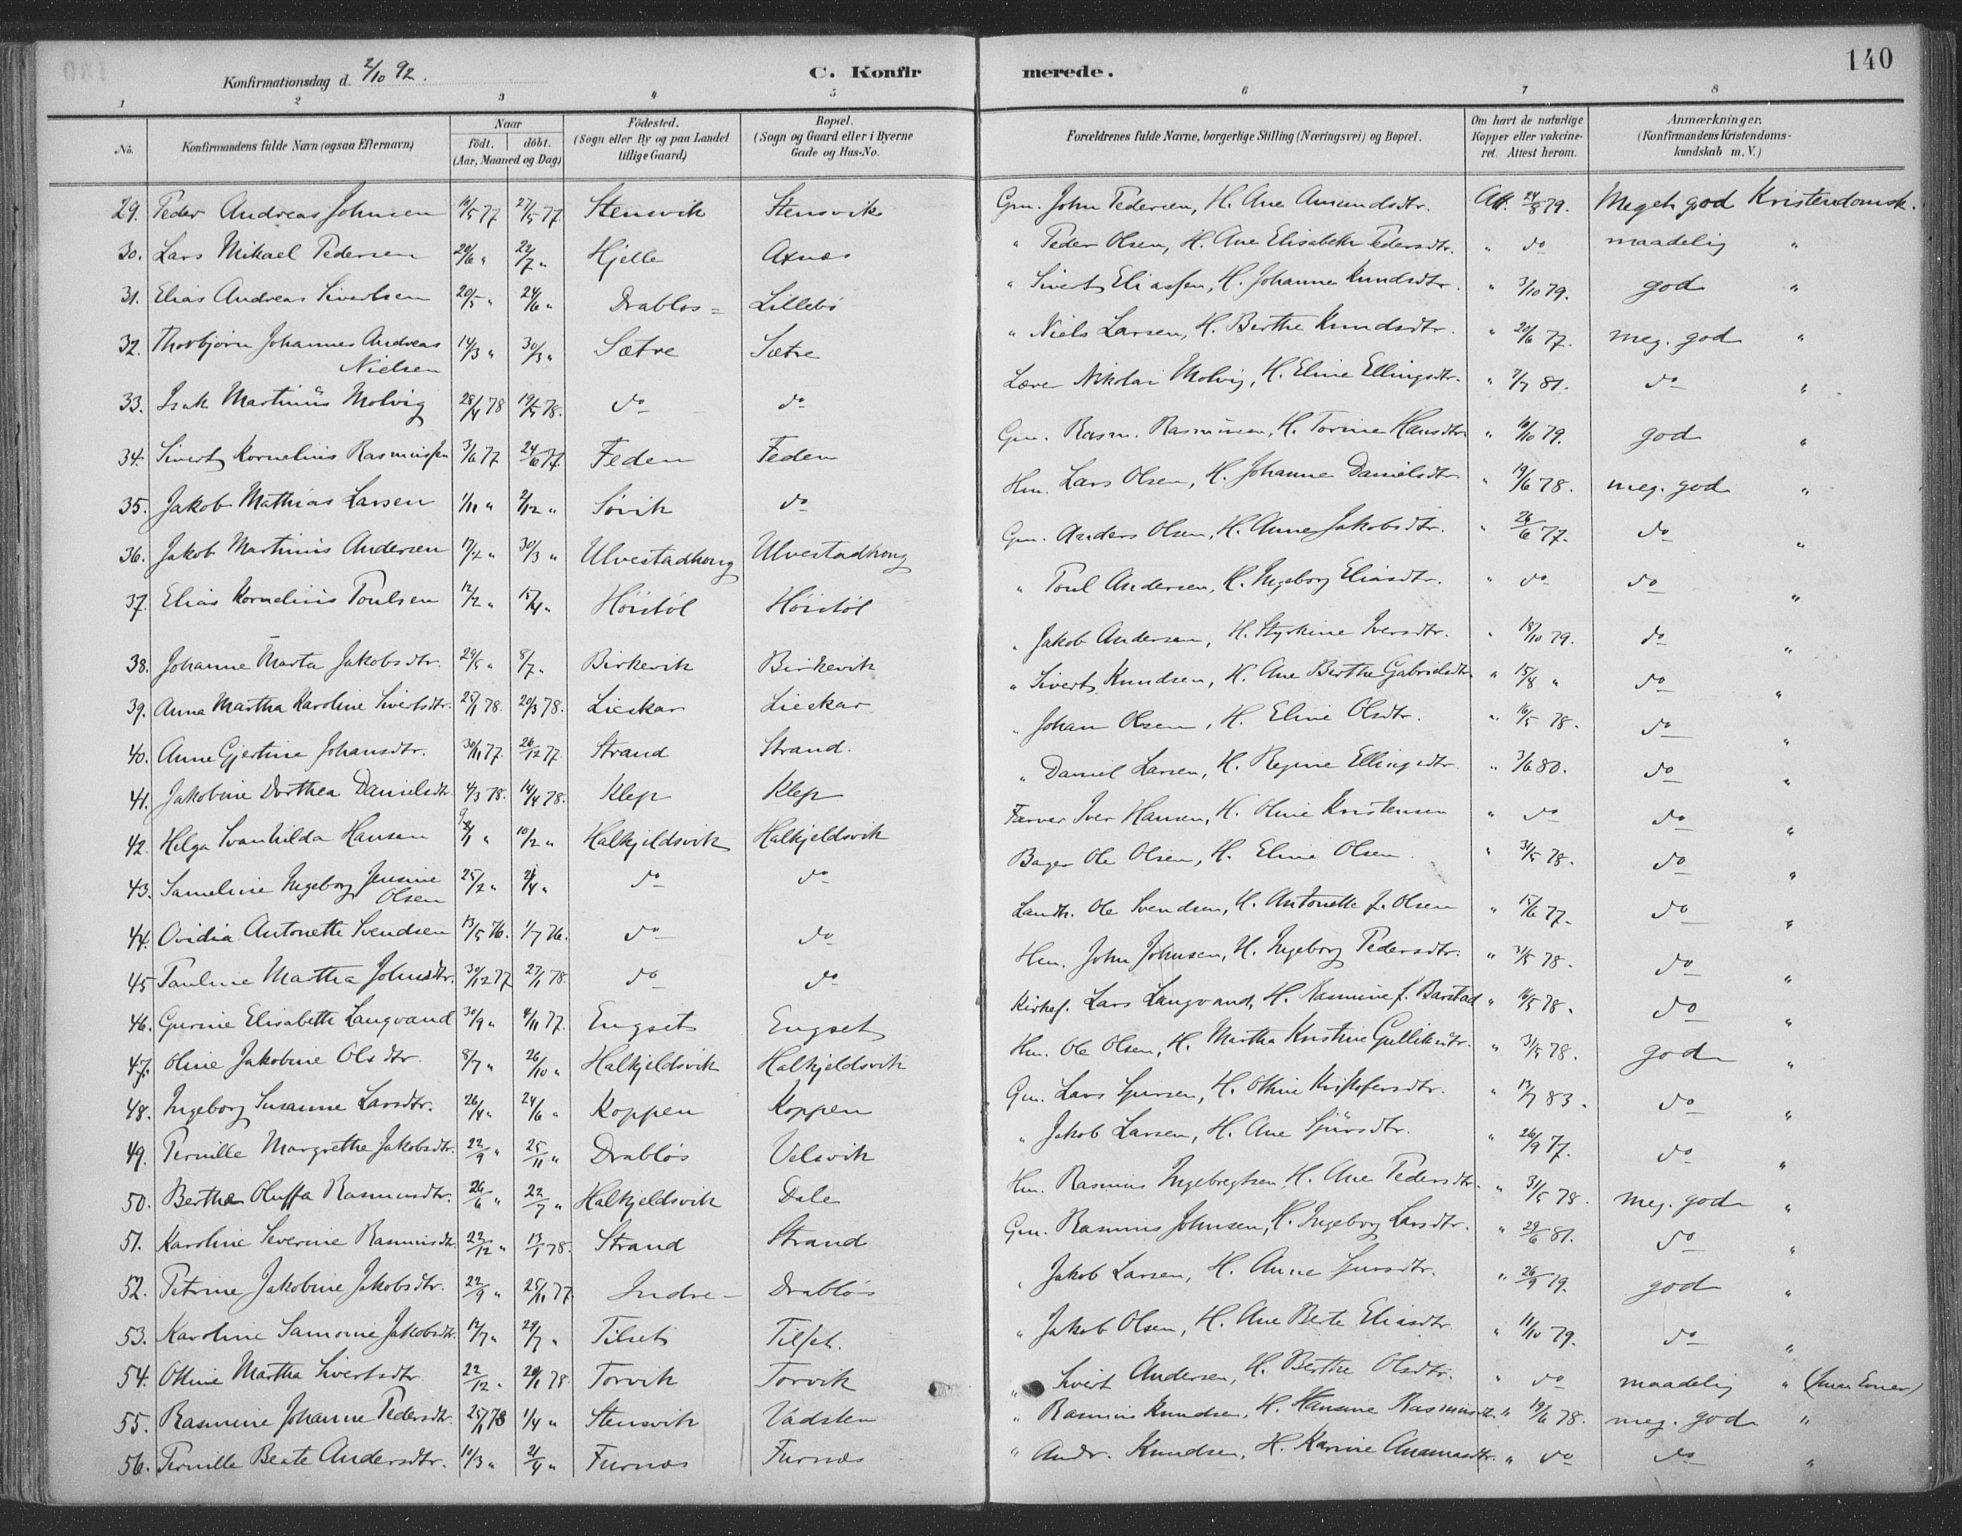 140
Konfirmationsdag d. 2/10 92.
C. Konfirmerede.
1 2 3 4 5 6 7 8
No. Konfirmandens fulde Navn (ogsaa Efternavn) Naar födt. döbt. (Aar, Maaned og Dag) Födested. (Sogn eller By og paa Landet tillige Gaard) Bopæl. (Sogn og Gaard eller i Byerne Gade og Hus-No. Forældrenes fulde Navne, borgerlige Stilling (Næringsvei) og Bopæl. Om havt de naturlige Kopper eller vakcineret. Attest herom. Anmærkninger. (Konfirmandens Kristendomskundskab m. V.)
29. Peder Andreas Johnsen 10/5 77 27/5 77. Stensvik Stensvik Gm. John Pedersen, H. Ane Amundsdtr. Att. 24/8 79. Meget god Kristendomsk.
30. Lars Mikael Pedersen 20/6 " 22/7 " Hjelle Axnes " Peder Olsen, H. Ane Elisabeth Pedersdtr. " do maadelig "
31. Elias Andreas Sivertsen 20/5 " 24/6 " Drabløs = Lillebö " Sivert Eliassen, H. Johanne Knudsdtr. " 3/10 79. god "
32. Thorbjörn Johannes Andreas Nielsen 14/3 " 30/3 " Sætre Sætre " Niels Larsen, H. Berthe Knudsdtr. " 20/6 77. meg. god "
33. Isak Martinus Molvig 28/4 78 19/5 78. do do Lærer Nikolai Molvig, H. Eline Ellingsdtr. " 7/7 81. do "
34. Sivert Kornelius Rasmussen 3/6 77 24/6 77. Feden Feden Gm. Rasm. Rasmussen, H. Torine Hansdtr " 10/10 79. god "
35. Jakob Mathias Larsen 1/11 " 2/12 " Sövik do Hm. Lars Olsen, H. Johanne Danielsdtr " 19/6 78. meg. god "
36. Jakob Martinus Andersen 17/2 " 30/3 " Ulvestadhoug Ulvestadhoug Gm. Anders Olsen, H. Anne Jakobsdtr. " 26/6 77. do "
37. Elias Kornelius Poulsen 12/2 " 15/4 " Höistöl Höistöl " Poul Andersen, H. Ingeborg Eliasdtr. " do do "
38. Johanne Marta Jakobsdtr. 29/5 " 8/7 " Birkevik Birkevik " Jakob Andersen, H. Styrkine Iversdtr. " 18/10 79. do "
39. Anna Martha Karoline Sivertsdtr. 25/1 78. 20/3 78. Lieskar Lieskar " Sivert Knudsen, H. Ane Berthe Gabrielsdtr " 15/8 " do "
40. Anne Gjertine Johansdtr. 30/11 77. 26/12 77. Strand Strand. " Johan Olsen, H. Eline Olsdtr. " 16/5 78. do "
41. Jakobine Dorthea Danielsdtr. 4/3 78. 14/4 78. Klep Klep " Daniel Larsen, H. Regine Ellingsdtr. " 3/6 80. do "
42. Helga Svanhilda Hansen 9/1 " 10/2 " Halkjeldsvik Halkjeldsvik Farver Iver Hansen, H. Oline Kristensen " do do "
43. Sameline Ingeborg Jensine Olsen 25/2 " 21/4 " do do Bager Ole Olsen, H. Eline Olsen. " 31/5 78. do "
44. Ovidia Antonette Svendsen 13/5 76. 1/7 76. do do Landh. Ole Svendsen, H. Antonette f. Olsen " 15/6 77. do "
45 Pauline Martha Johnsdtr. 30/12 77 27/1 78. do do Hm. John Johnsen, H. Ingeborg Pedersdtr. " 31/5 78. do "
46. Gurine Elisabeth Langvand 30/9 " 4/11 77. Engset Engset Kirkes. Lars Langvand, H. Rasmine f. Barstad " 16/5 78. do "
47. Oline Jakobine Olsdtr. 8/7 " 26/10 " Halkjeldsvik Halkjeldsvik Hm. Ole Olsen, H. Martha Kristine Gulliksdtr. " 31/5 78. god "
48. Ingeborg Susanne Larsdtr. 26/4 " 24/6 " Koppen Koppen Gm. Lars Sjursen, H. Othine Kristofersdtr. " 13/7 83. do "
49. Pernille Margrethe Jakobsdtr. 22/9 " 25/11 " Drabløs Velsvik " Jakob Larsen, H. Ane Sjursdtr. " 26/9 77. do "
50. Berthe Oluffa Rasmusdtr. 26/6 " 22/7 " Halkjeldsvik Dale Hm. Rasmus Ingebregtsen, H. Ane Pedersdtr. " 31/5 78. meg. god "
51. Karoline Severine Rasmusdtr. 22/12 " 13/1 78. Strand Strand Gm. Rasmus Johnsen, H. Ingeborg Larsdtr. " 29/6 81. do "
52. Petrine Jakobine Jakobsdtr. 22/9 " 25/11 77 Indre - Drabløs " Jakob Larsen, H. Anne Sjursdtr. " 26/9 79. god "
53. Karoline Samonie Jakobsdtr. 12/7 " 29/7 " Tilset Tilset. " Jakob Olsen, H. Ane Bete Eliasdtr. " 11/10 79. do "
54. Othine Martha Sivertsdtr. 22/12 " 20/1 78. Torvik Torvik " Sivert Andersen, H. Berthe Olsdtr. " do maadelig " (smaa Evner)
55. Rasmine Johanne Pedersdtr. 25/1 78 1/4 " Stensvik Vadsten " Rasmus Knudsen, H. Hansine Rasmusdtr. " 19/6 78. meg. god "
56. Pernille Beate Andersdtr. 10/3 " 21/4 " Furnæs Furnæs " Andr. Knudsen, H. Karine Asmusdtr. " do do "